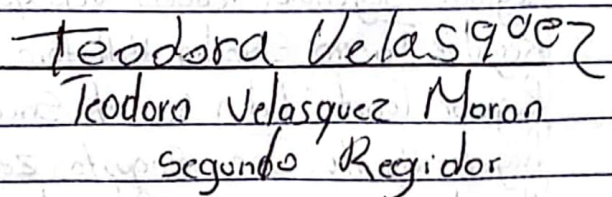 Teodora Velasquez
Teodoro Velasquez Moron
Segundo Regidor